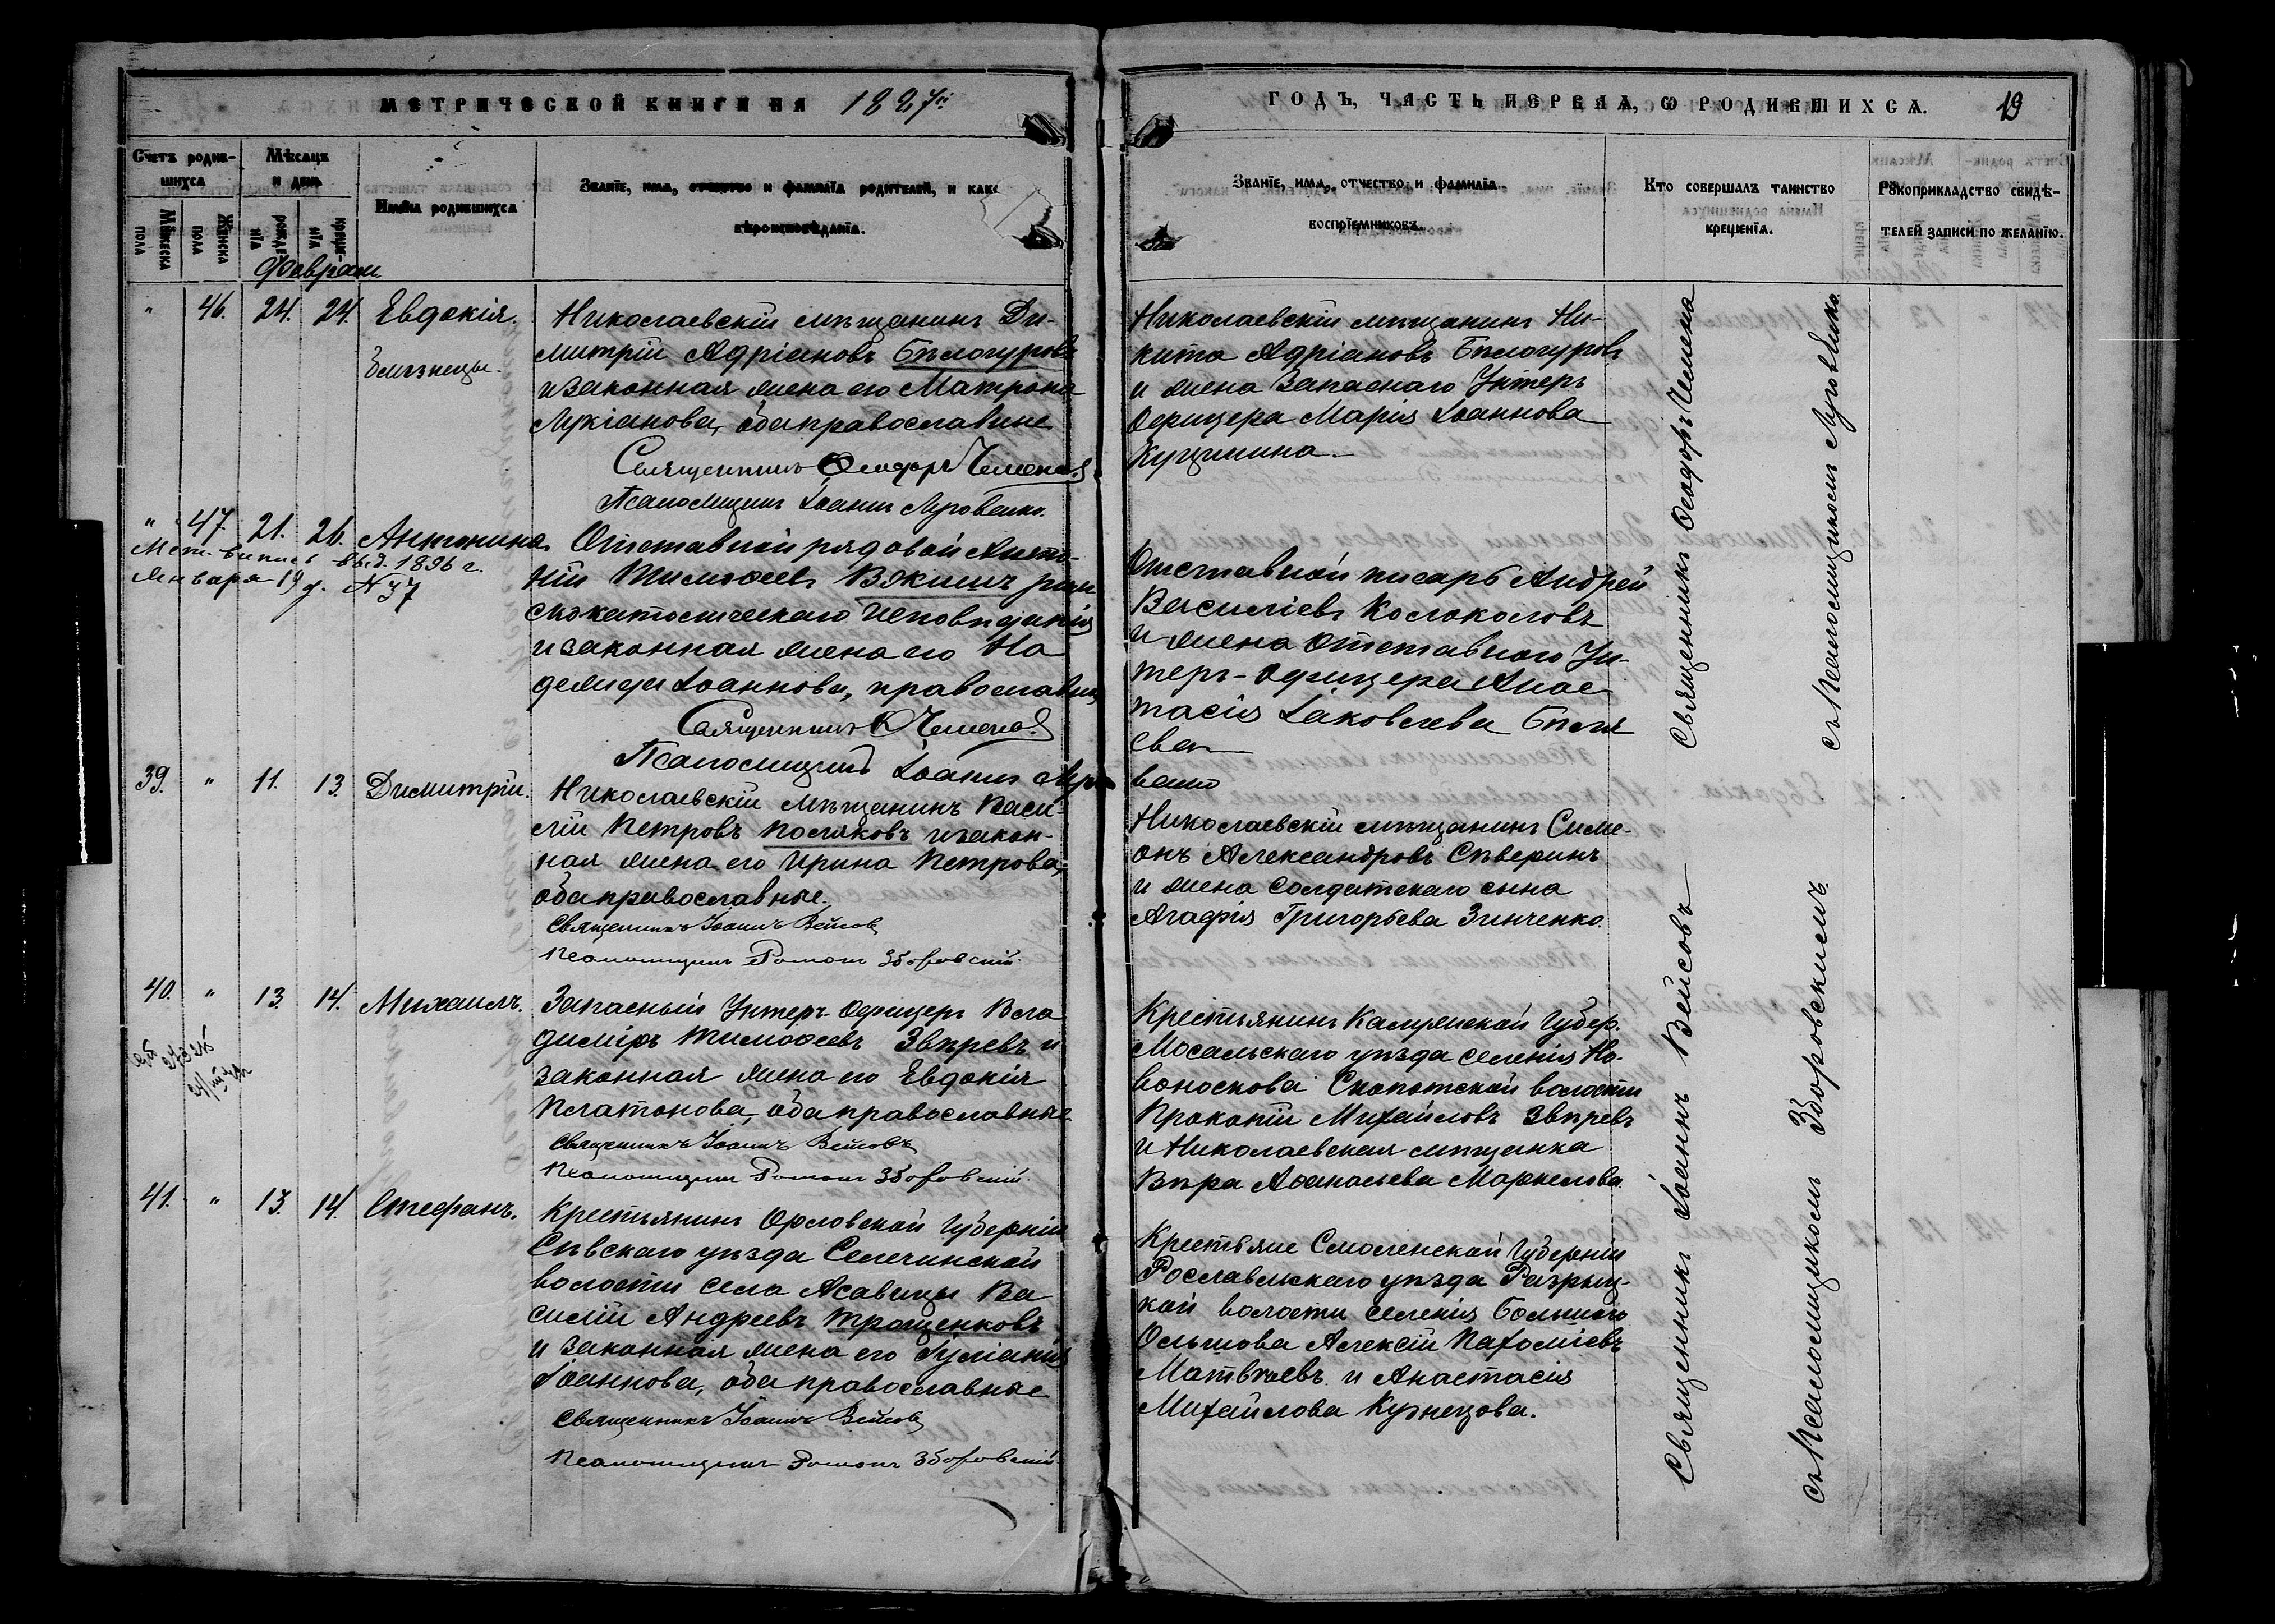 МЕТРИЧЕСКОЙ КНИГИ НА 1887й
ГОДЪ, ЧАСТЬ ПЕРВАЯ, Ѡ РОДИВШИХСѦ.
19
Счетъ родив-
шихсѧ
Мѣсѧцъ
и день
Имена родившихсѧ
Званїе, имѧ, отчество и фамилїѧ родителей, и како
вѣроисповѣданїѧ.
Званїе, имѧ, отчество, и фамилїѧ
воспрїемниковъ.
Кто совершалъ таинство
крещенїѧ.
Рѹкоприкладство свидѣ-
телей записи по желанїю.
Мѹжеска
пола
Женска
пола
рожде
нїѧ
креще-
нїѧ
Февраль
" 46. 24. 24. Евдокія.
Близнецы.
Николаевскій мѣщанинъ Ди-
митрій Адріановъ Бѣлогуровъ
и законная жена его Матрона
Лукіанова, оба православные
Священникъ Ѳеодоръ Чемена
Псаломщикъ Іоаннъ Луговенко.
Николаевскій мѣщанинъ Ни-
кита Адріановъ Бѣлогуровъ
и жена Запаснаго Унтеръ
Офицера Марія Іоаннова
Кущинина.
" 47. 21. 26. Антонина
Мет. выпись выд. 1896 г.
Января 19 д. № 37
Отставной рядовой Анто-
ній Тимоѳеевъ Вакишъ рим
скокатолическаго исповѣданія
и законная жена его На
дежда Іоаннова, православная
Священникъ Ѳ Чемена
Псаломщикъ Іоаннъ Луго
венко
Отставной писарь Андрей
Василіевъ Колоколовъ
и жена отставного Ун-
теръ-офицера Анас
тасія Іаковлева Бѣля
ева
39. " 11. 13. Димитрій.
Николаевскій мѣщанинъ Васи-
лій Петровъ Поляковъ и закон-
ная жена его Ирина Петрова,
оба православные.
Священникъ Іоаннъ Вейсовъ
Псаломщикъ Романъ Зборовскій.
Николаевскій мѣщанинъ Симе-
онъ Александровъ Сѣверинъ
и жена солдатскаго сына
Агафія Григорьева Зинченко.
40. " 13. 14. Михаилъ.
Запасный Унтеръ-Офицеръ Вла
диміръ Тимоѳеевъ Звѣревъ и
законная жена его Евдокія
Платонова, оба православные.
Священникъ Іоаннъ Вейсовъ
Псаломщикъ Романъ Зборовскій.
Крестьянинъ Калужской Губер.
Мосальскаго уѣзда селенія Но-
воноскова Сполотской волости
Прокопій Михайловъ Звѣревъ
и Николаевская мѣщанка
Вѣра Аѳанасьева Маркелова.
41. " 13. 14. Стефанъ.
Крестьянинъ Орловской Губерніи
Сѣвскаго уѣзда Селечинской
волости села Асавицы Ва
силій Андреевъ Трощенковъ
и законная жена его Іуліанія
Іоаннова, оба православные
Священникъ Іоаннъ Вейсовъ
Псаломщикъ Романъ Зборовскій
Крестьяне Смоленской Губерніи
Рославльскаго уѣзда
кой волости селенія Большого
Ольшова Алексій Пахоміевъ
Матвѣевъ и Анастасія
Михайлова Кузнецова.
Священникъ Ѳеодоръ Чемена
съ Псаломщикомъ Луговенко
Священникъ Іоаннъ Вейсовъ
съ Псаломщикомъ Зборовскимъ